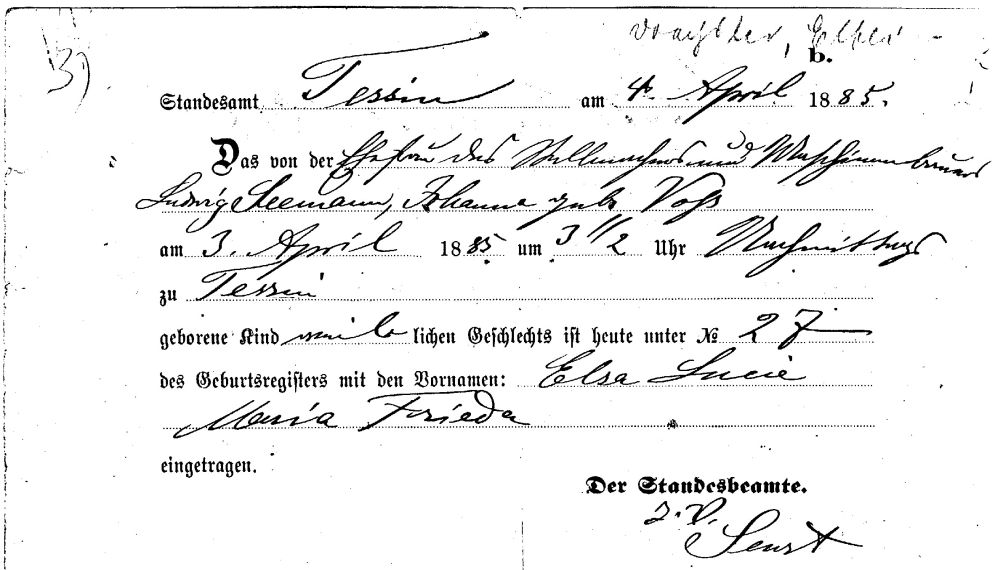 3)
b.
Standesamt Tessin am 4. April 1885.
Das von der Ehefrau des Stellmachers und Maschinenbauers
Ludwig Seemann, Johanna geb. Voß
am 3. April 1885 um 3 1/2 Uhr Nachmittags
zu Tessin
geborene Kind weiblichen Geschlechts ist heute unter № 27
des Geburtsregisters mit den Vornamen: Elsa Lucie
Maria Frieda
eingetragen.
Der Standesbeamte.
I. V.